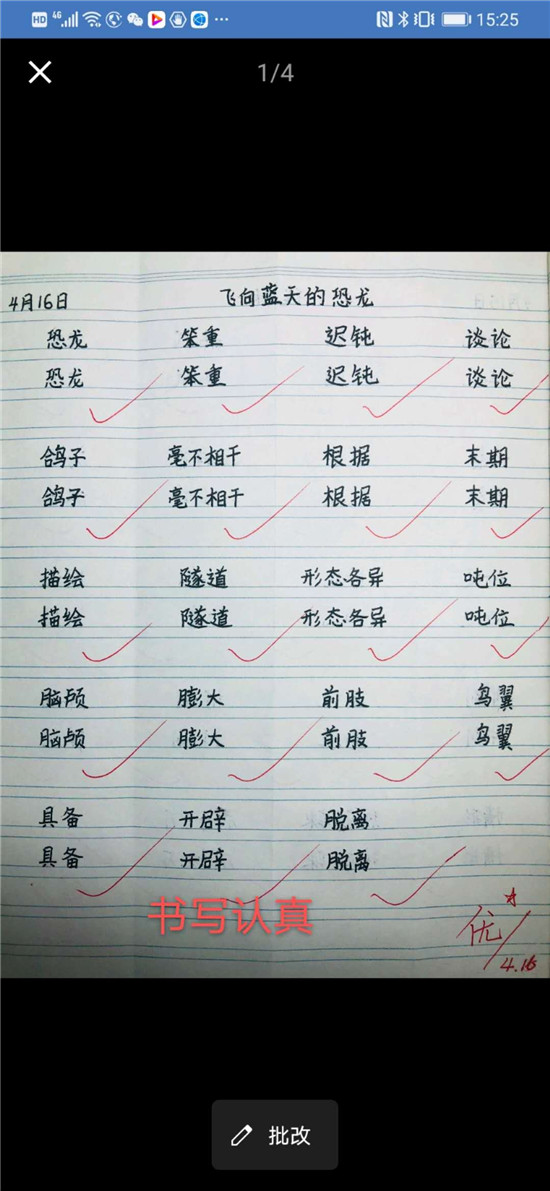 HD 4G 15:25
1/4
4月16日 飞向蓝天的恐龙
恐龙 笨重 迟钝 谈论
恐龙 笨重 迟钝 谈论
鸽子 毫不相干 根据 末期
鸽子 毫不相干 根据 末期
描绘 隧道 形态各异 吨位
描绘 隧道 形态各异 吨位
脑颅 膨大 前肢 鸟翼
脑颅 膨大 前肢 鸟翼
具备 开辟 脱离
具备 开辟 脱离
书写认真
优
4.16
批改